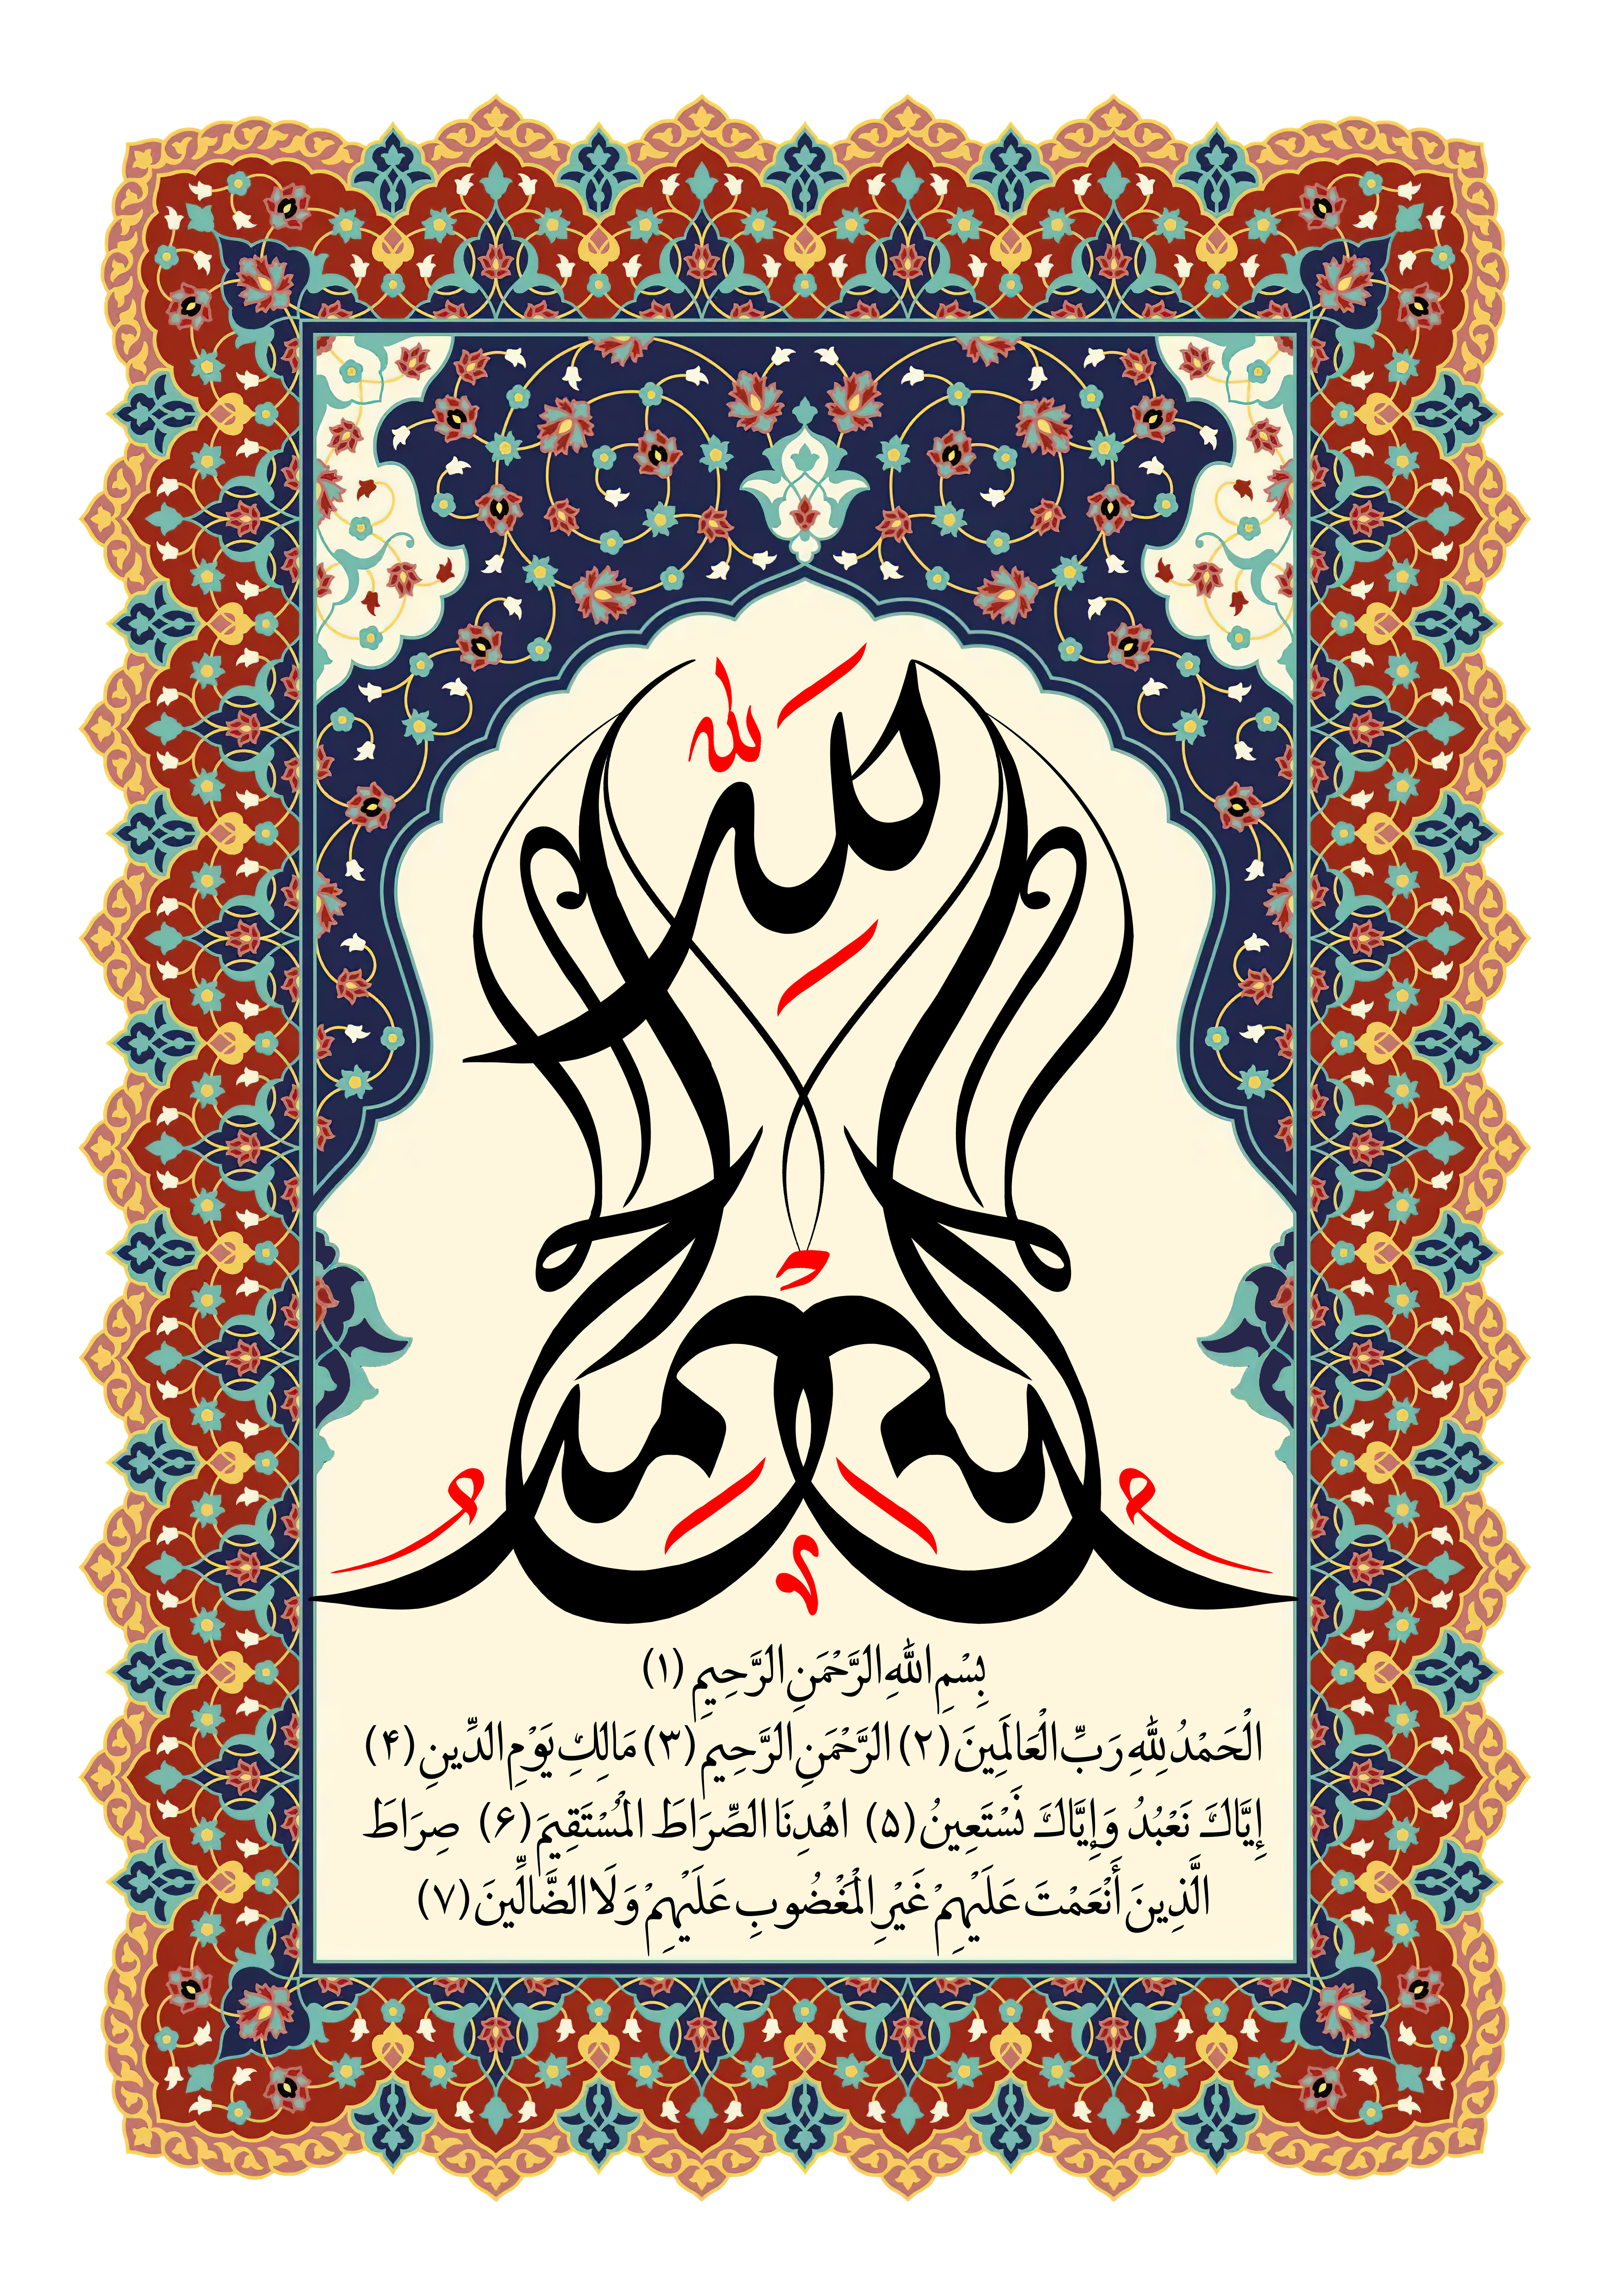 الحمد لله
بِسْمِ اللَّهِ الرَّحْمَنِ الرَّحِيمِ (۱)
الْحَمْدُ لِلَّهِ رَبِّ الْعَالَمِينَ (۲) الرَّحْمَنِ الرَّحِيمِ (۳) مَالِكِ يَوْمِ الدِّينِ (۴)
إِيَّاكَ نَعْبُدُ وَإِيَّاكَ نَسْتَعِينُ (۵) اهْدِنَا الصِّرَاطَ الْمُسْتَقِيمَ (۶) صِرَاطَ
الَّذِينَ أَنْعَمْتَ عَلَيْهِمْ غَيْرِ الْمَغْضُوبِ عَلَيْهِمْ وَلَا الضَّالِّينَ (۷)